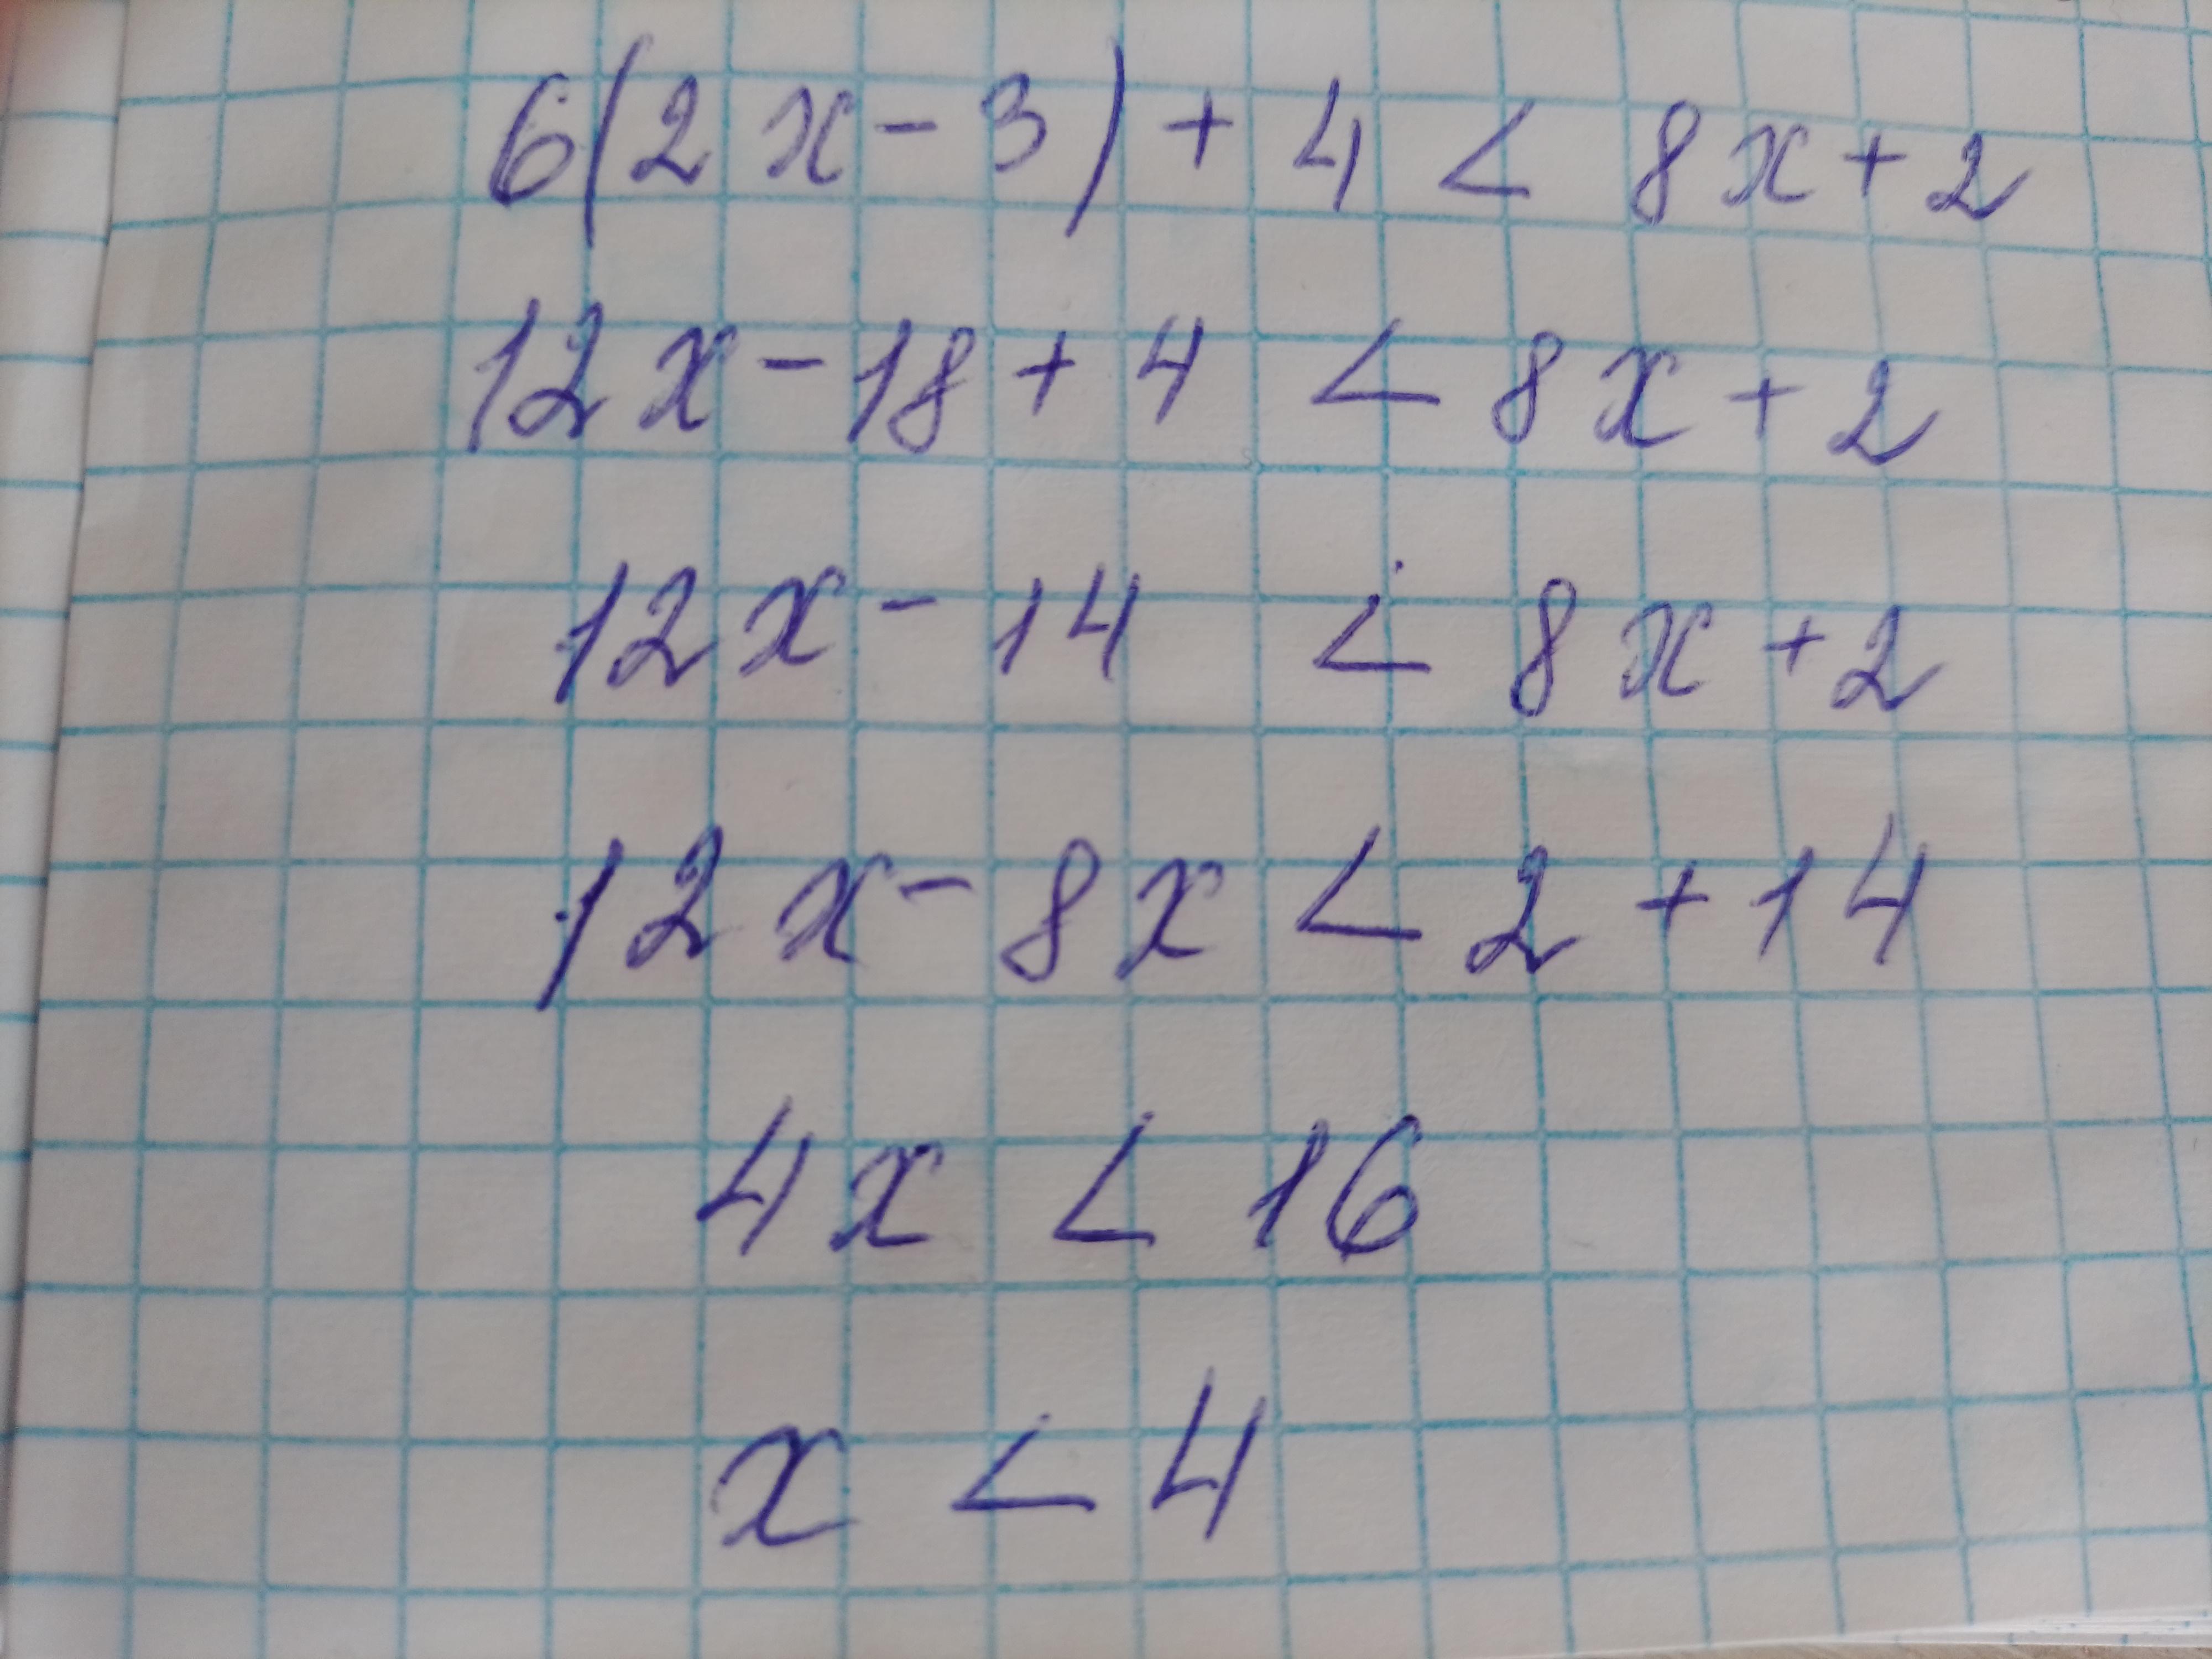 6(2x-3)+4<8x+2
12x-18+4<8x+2
12x-14<8x+2
12x-8x<2+14
4x<16
x<4